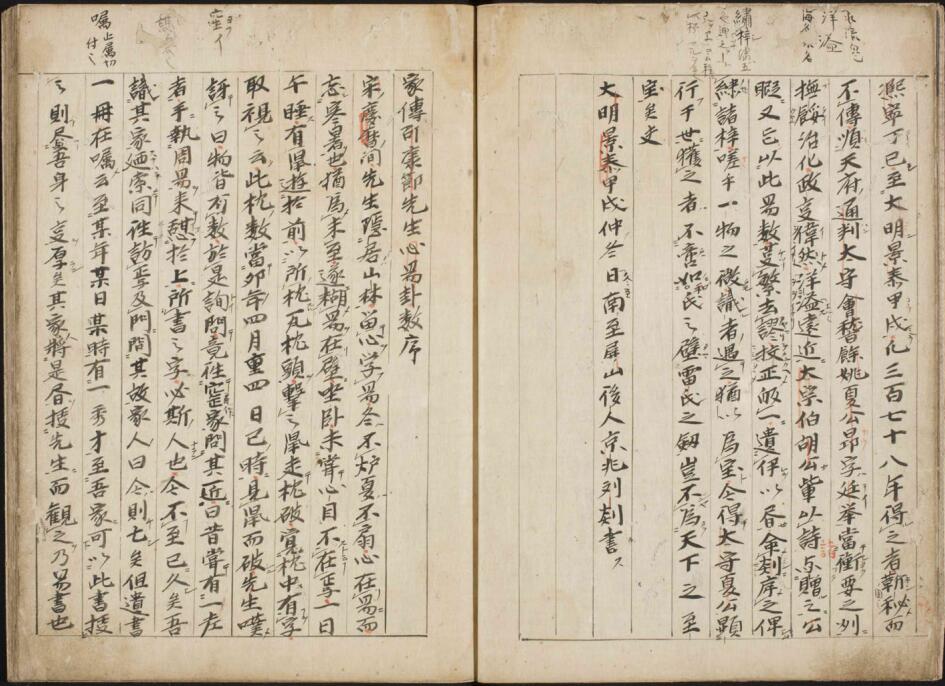 熙寧丁巳至大明景泰甲戌凡三百七十八年得之者韜秘而
不傳順天府通判大守會稽餘姚夏公昂字廷舉當衝要之州
撫綏治化政立偉然洋溢遠近大宗伯胡公輩以詩与贈之公
暇又已以此易数蔓繁去謬挍正的一遺伊以昏命剞序之俾
綉諸梓嗟乎一物之微識者遇之猶以爲宝今得太守夏公顕
行于世獲之者不啻如和氏之璧雷氏之劔豈不爲天下之至
宝矣丈
大明景泰甲戌仲冬日南至屏山後人京兆刘剡書
家傳邵康節先生心易卦数序
宋慶暦間先生隱居山林留心学易冬不炉夏不扇心在易而
忘寒暑也猶爲未至遂糊易在壁坐卧未嘗心目不在焉一日
午睡有鼠遊於前以所枕瓦枕頭擊之鼠走枕破覚枕中有字
取視之云此枕数當卯年四月重四日巳時見鼠而破先生嘆
訝之曰物皆有数於是詢問竟徃窑家問其近曰昔嘗有一老
者手執周易来憩於上所書之字必斯人也今不至已久矣吾
識其家廼索同徃訪焉及門問其故家人曰今則亡矣但遺書
一冊在嘱云至某年某日某時有一秀才至吾家可以此書授
之則尽吾身之立厚矣其家將是昏授先生而観之乃易書也
洋溢
海名以名
繡梓
窑イ
嘱止属切
付之